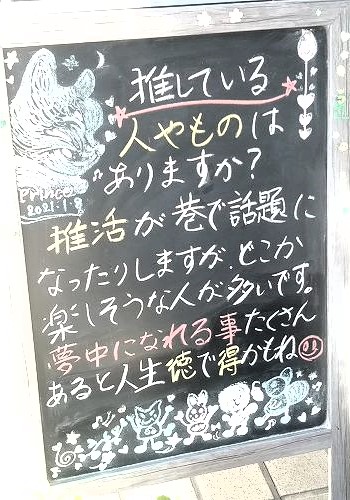 推している
人やものは
ありますか?
推活が巷で話題に
なったりしますが、どこか
楽しそうな人が多いです。
夢中になれる事たくさん
あると人生徳で得かもね
Prince
2021.1.8